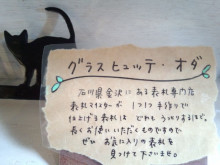 グラスヒュッテ・オダ
石川県金沢にある表札専門店
表札マイスターが1つ1つ手作りで
仕上げる表札は どれも うっとりするほど。
長くお使いいただくものですので
ぜひ お気に入りの表札を
見つけて下さいませ。